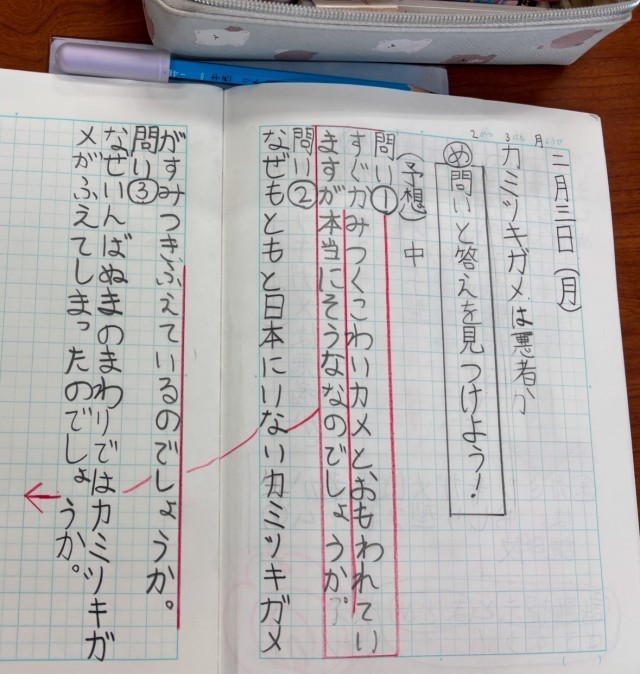 2がつ 3にち 月ようび
二月三日(月)
カミツキガメは悪者か
め 問いと答えを見つけよう!
(予想) 中
問い①
すぐかみつくこわいカメとおもわれてい
ますが本当にそうななのでしょうか。
問い②
なぜもともと日本にいないカミツキガメ
がすみつきふえているのでしょうか。
問い③
なぜいんばぬまのまわりではカミツキガ
メがふえてしまったのでしょうか。